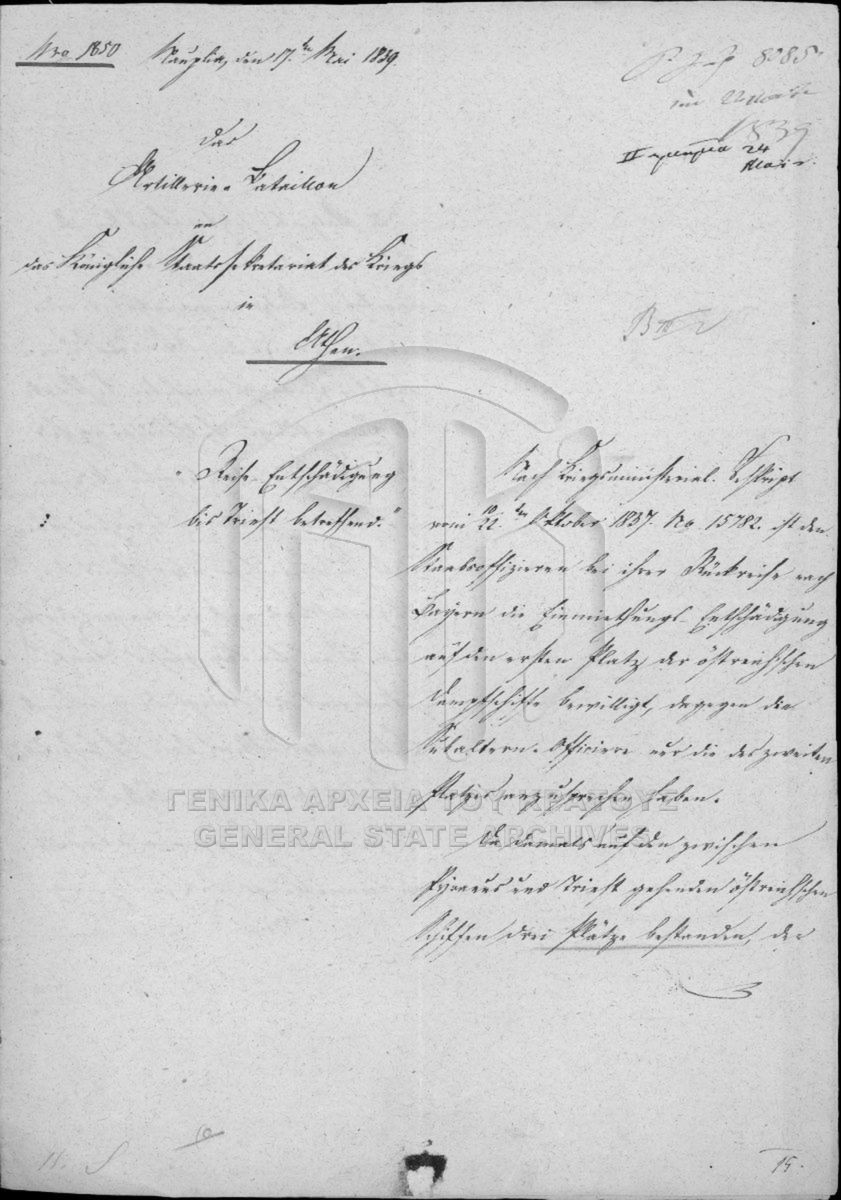 Nro 1850 Nauplia, den 17.ten Mai 1839.
8085
1839
II τμημα 24
Das
Artillerie-Bataillon
an
das Königliche Staatssekretariat des Kriegs
in
Athen.
"Reise-Entschädigung
bis Triest betreffend."
Nach Kriegsministerial-Reskript
vom 10/22.ten Oktober 1837. No. 15782. ist den
Staabsoffizieren bei ihrer Rückreise nach
Bayern die Einmiethungs-Entschädigung
auf den ersten Platz der östreichischen
Dampfschiffe bewilligt, dagegen die
Subaltern-Offiziere nur die des zweiten
Platzes anzusprechen haben.
Da damals auf den zwischen
Pyraeus und Triest gehenden östreichischen
Schiffen drei Plätze bestanden, der
15.
ΓΕΝΙΚΑ ΑΡΧΕΙΑ ΤΟΥ ΚΡΑΤΟΥΣ
GENERAL STATE ARCHIVES